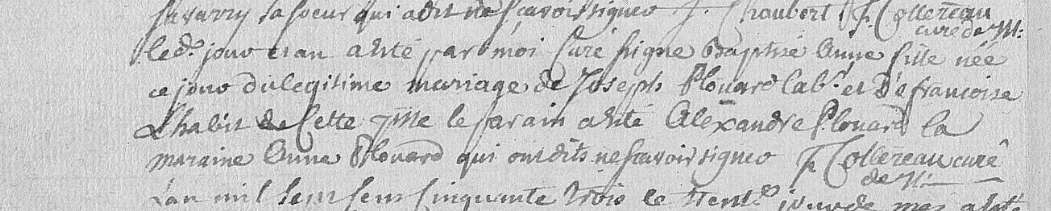 sa soeur qui a dit ne scavoir signeo J. Choubert F. Collereau
curé de M:
led. jour et an a été par moi Curé signe Baptisé Anne fille née
ce jour du legitime mariage de Joseph Plouard lab. et De francoise
Lhabit de Cette psse le parain a été Alexandre Plouard la
maraine Anne Plouard qui ont dits ne scavoir signeo F. Collereau curé
de M:
Lan mil sept sens Cinquante trois le